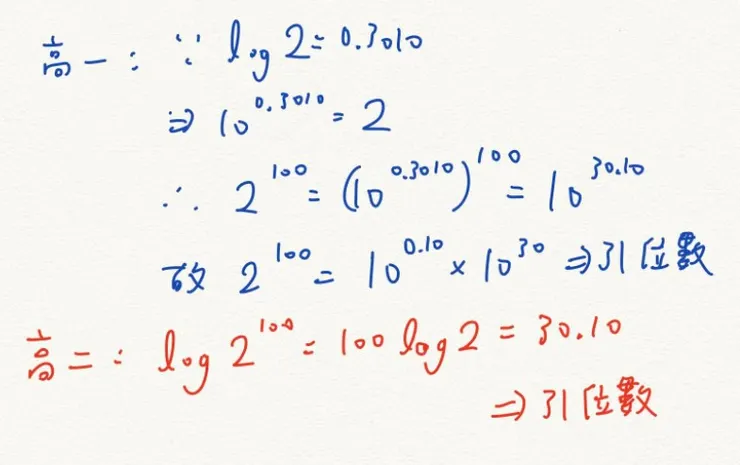 高一：∵ log 2 = 0.3010
⇒ 10^0.3010 = 2
∴ 2^100 = (10^0.3010)^100 = 10^30.10
故 2^100 = 10^0.10 × 10^30 ⇒ 31位數
高二：log 2^100 = 100 log 2 = 30.10
⇒ 31位數